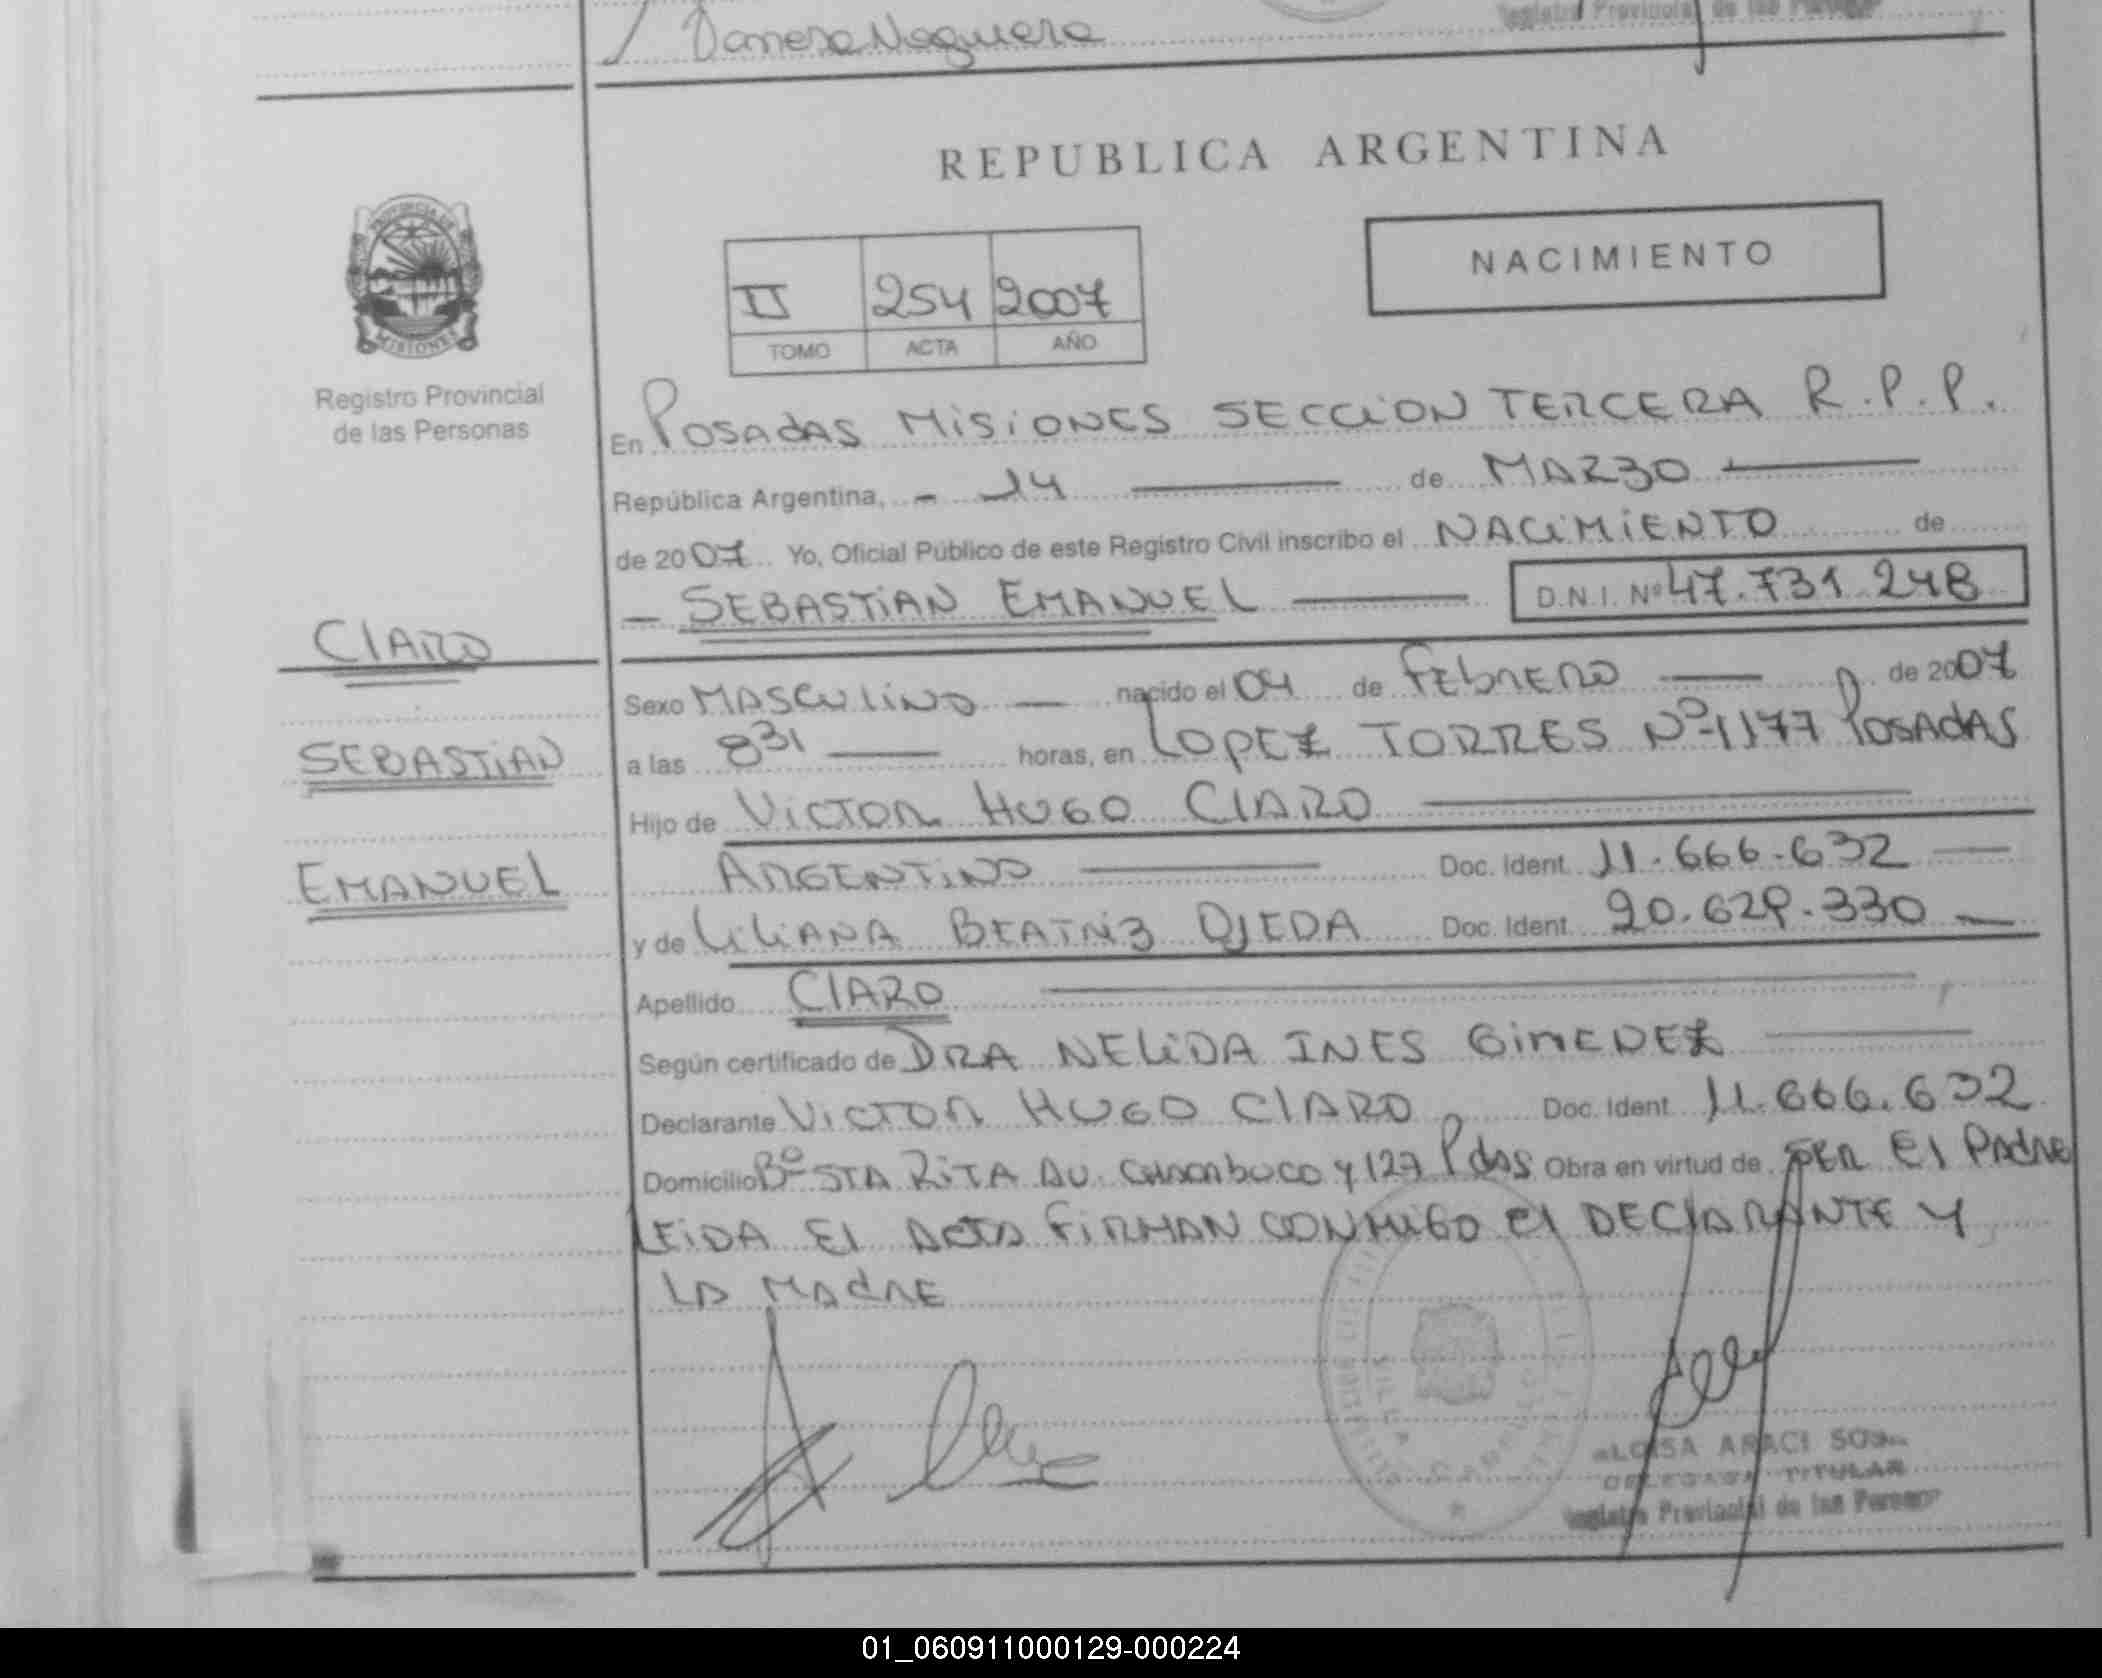 Vanesa Noguera
Registro Provincial de las Personas
REPUBLICA ARGENTINA
PROVINCIA DE
MISIONES
Registro Provincial
de las Personas
NACIMIENTO
II 254 2007
TOMO ACTA AÑO
En POSADAS MISIONES SECCION TERCERA R.P.P.
República Argentina, - 14 de MARZO
de 2007 Yo, Oficial Público de este Registro Civil inscribo el NACIMIENTO de
SEBASTIAN EMANUEL D.N.I. Nº 47.731.248
CLARO
SEBASTIAN
EMANUEL
Sexo MASCULINO nacido el 04 de FEBRERO de 2007
a las 8 31 horas, en LOPEZ TORRES Nº 1177 POSADAS
Hijo de VICTOR HUGO CLARO
ARGENTINO Doc. Ident. 11.666.632
y de LILIANA BEATRIZ OJEDA Doc. Ident. 20.629.330
Apellido CLARO
Según certificado de DRA NELIDA INES GIMENEZ
Declarante VICTOR HUGO CLARO Doc. Ident. 11.666.632
Domicilio Bº STA RITA AV. CHACABUCO Y 127 Pdas Obra en virtud de SER El PADRE
LEIDA El ACTA FIRMAN CONMIGO El DECLARANTE Y
LA MADRE
ARACI
DELEGADA TITULAR
Registro Provincial de las Personas
01_060911000129-000224